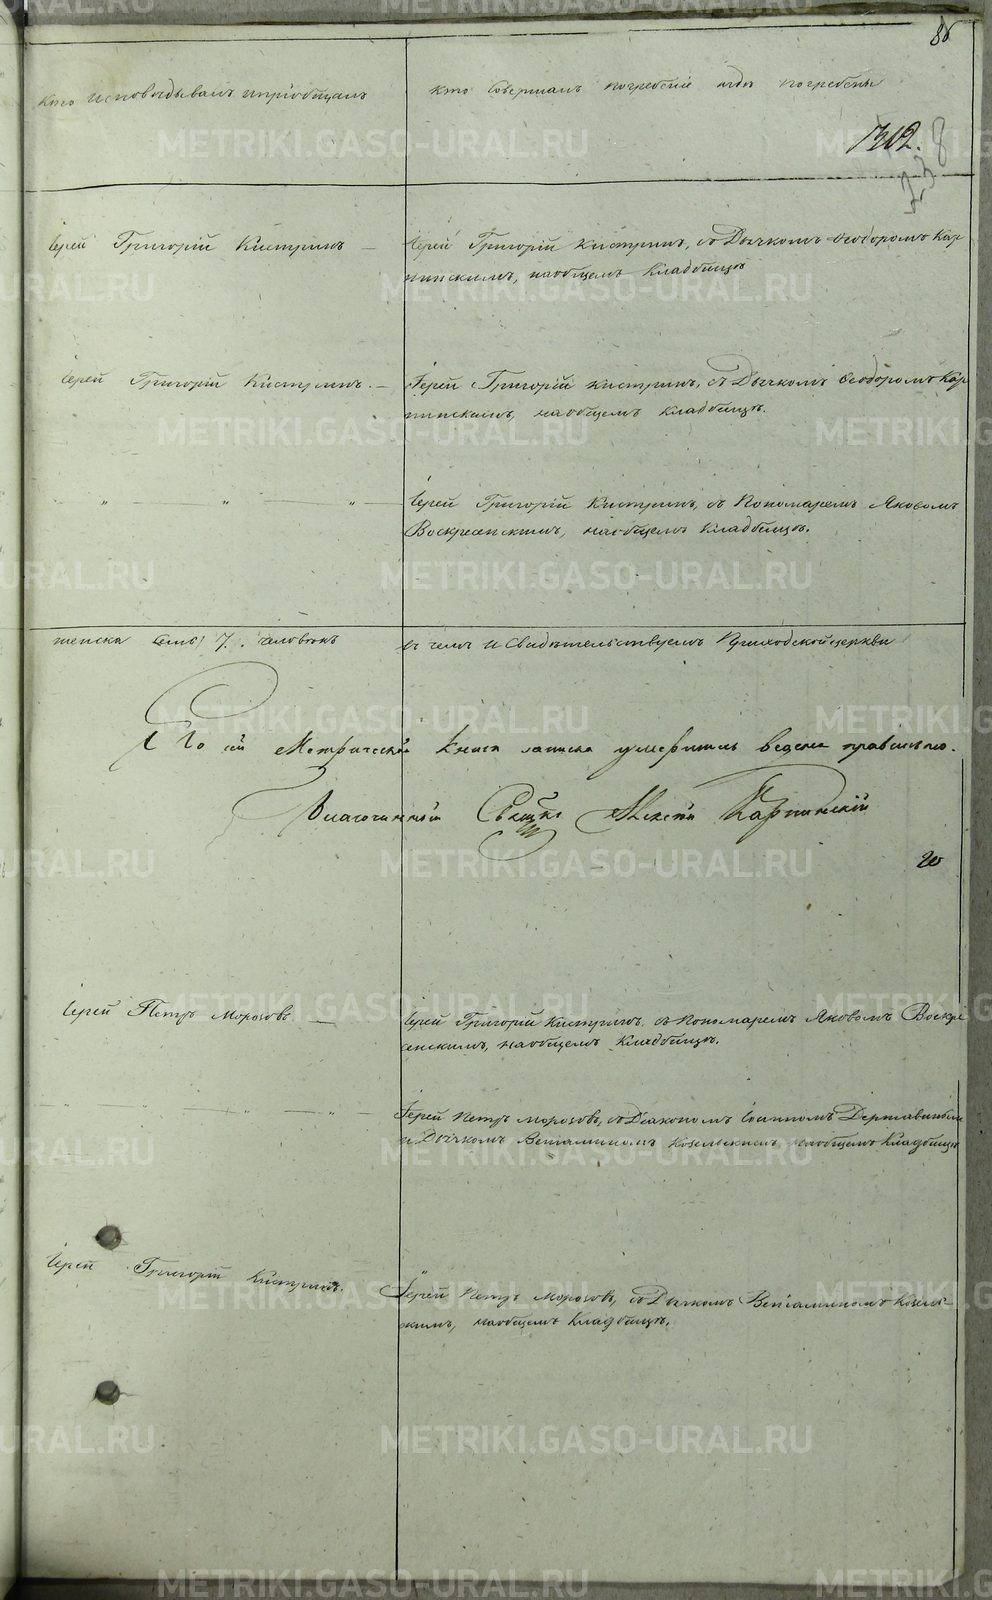 86
Кто исповѣдывалъ и пріобщалъ
Кто совершалъ погребеніе и гдѣ погребены
1302.
238
Іерей Григорій Кистринъ —
Іерей Григорій Кистринъ, съ Дьячкомъ Ѳеодоромъ Кар
пинскимъ, на общемъ кладбищѣ
Іерей Григорій Кистринъ. —
Іерей Григорій Кистринъ, съ Дьячкомъ Ѳеодоромъ Кар
пинскимъ, на общемъ кладбищѣ.
„ — „ — „ —
Іерей Григорій Кистринъ, съ Пономаремъ Яковомъ
Воскресенскимъ, на общемъ кладбищѣ.
женска семь 7. человѣкъ
въ чемъ и свидѣтельствуемъ Приходской церкви
По сей Метрической книги записка умершимъ ведена правильно.
Благочинный Алексѣй Карпинскій
Іерей Петръ Морозовъ —
Іерей Григорій Кистринъ, съ Пономаремъ Яковомъ Воскре
сенскимъ, на общемъ кладбищѣ.
„ — „ — „ —
Іерей Петръ Морозовъ, съ Діакономъ Іоанномъ
и Дьячкомъ Веніаминомъ Козельскимъ, на общемъ кладбищѣ
Іерей Григорій Кистринъ.
Іерей Петръ Морозовъ, съ Дьячкомъ Веніаминомъ Козель-
скимъ, на общемъ кладбищѣ.
METRIKI.GASO-URAL.RU